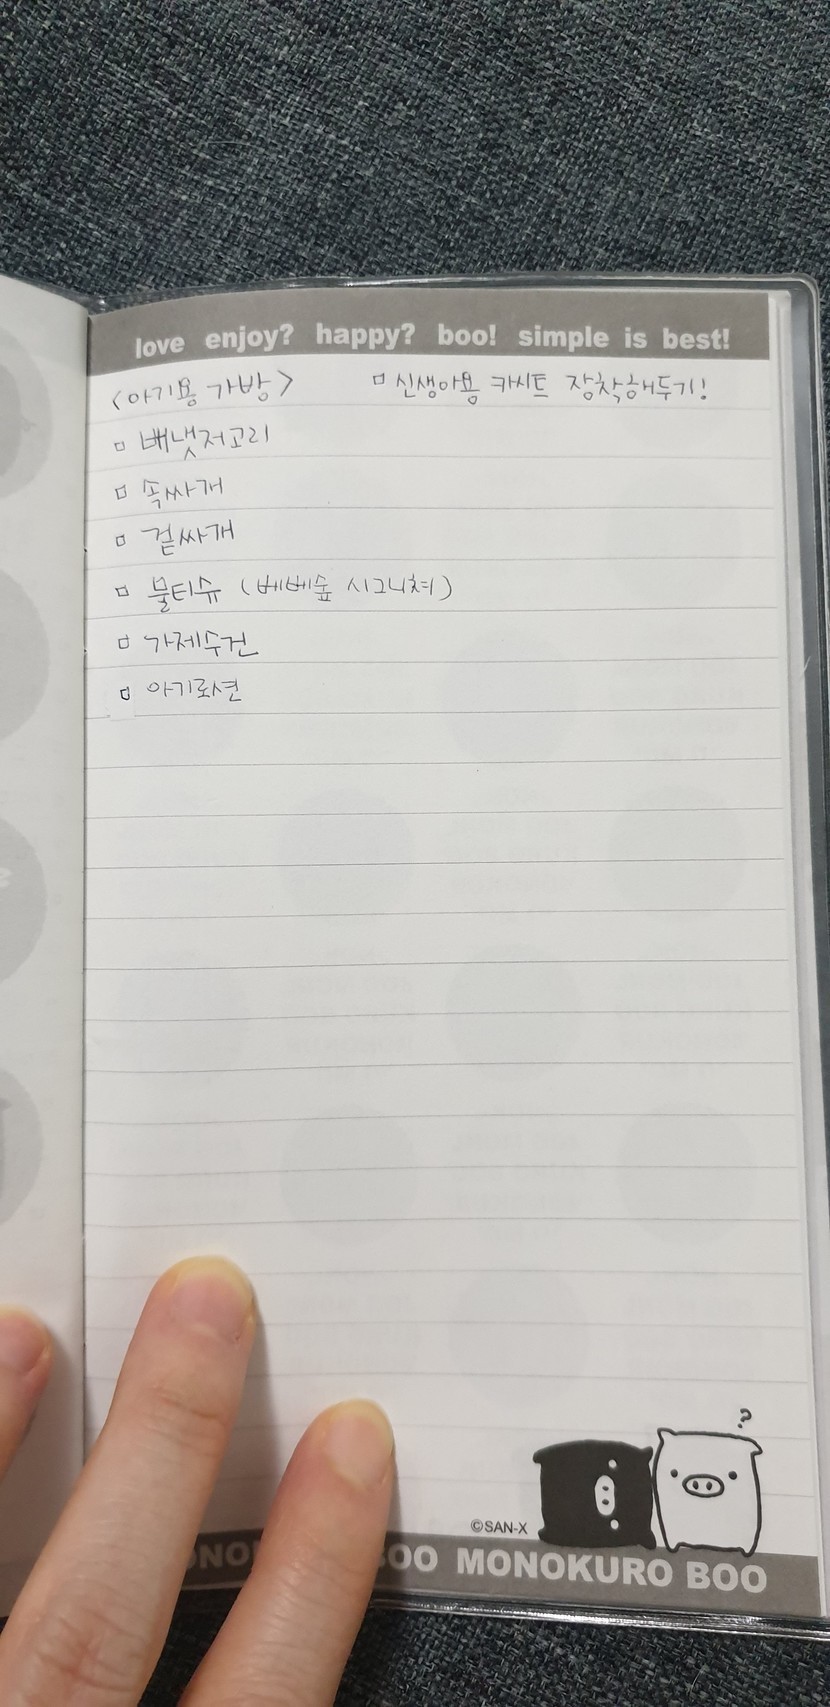 love enjoy? happy? boo! simple is best!
<아기용 가방> □ 신생아용 카시트 장착해두기!
□ 배냇저고리
□ 속싸개
□ 겉싸개
□ 물티슈 (베베숲 시그니쳐)
□ 가제수건
□ 아기로션
?
©SAN-X
BOO MONOKURO BOO